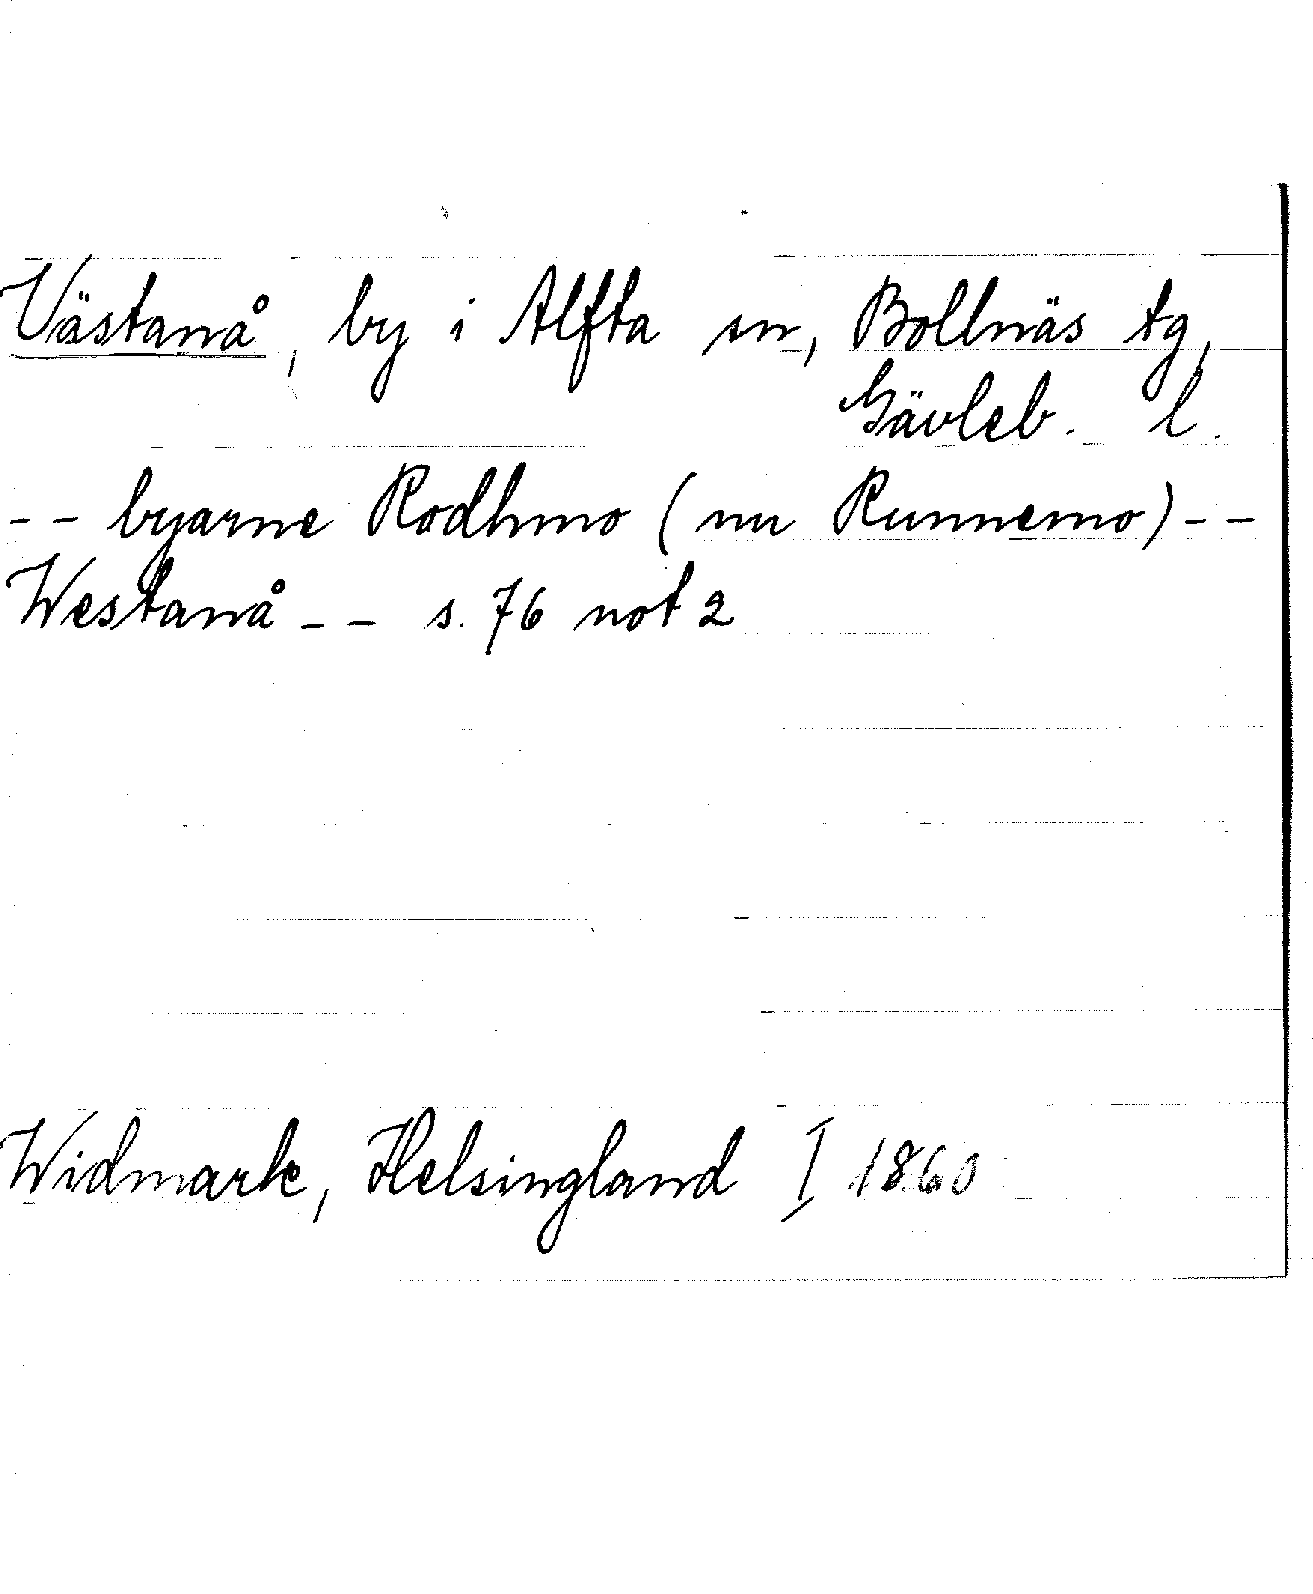 Västanå, by i Alfta sn, Bollnäs tg,
Gävleb. l.
-- byarne Rodhmo (nu Runnemo) --
Westanå -- s. 76 not 2
Widmark, Helsingland I 1860